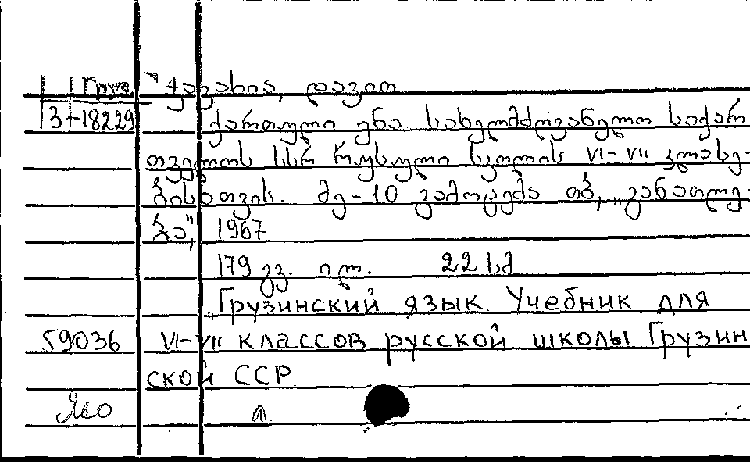 Груз. ჯავახია, დავით
3-18229 ქართული ენა სახელმძღვანელო საქარ-
თველოს სსრ რუსული სკოლის VI-VII კლასე-
ბისათვის. მე-10 გამოცემა თბ., „განათლე-
ბა", 1967
179 გვ. ილ. 22 1.
Грузинский язык. Учебник для
59036 VI-VII классов русской школы Грузин
ской ССР